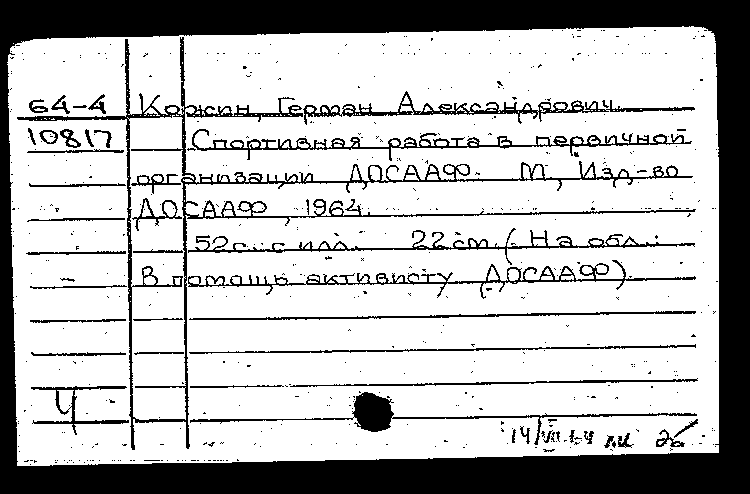 64-4 Коржин, Герман Александрович.
10817 Спортивная работа в первичной
организации ДОСААФ. М., Изд-во
ДОСААФ, 1964.
52 с. с илл. 22 см. (На обл.:
В помощь активисту ДОСААФ).
Ч
14/VII 64